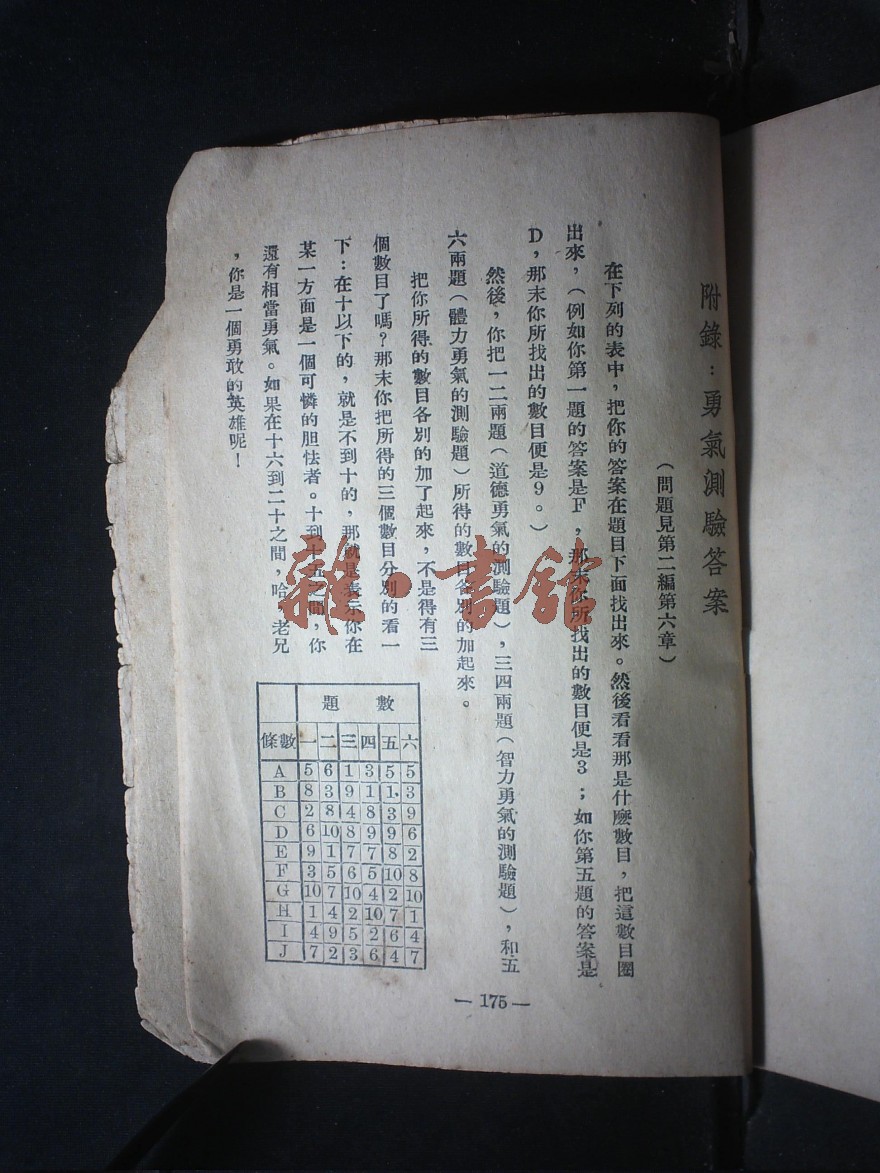 附錄：勇氣測驗答案
（問題見第二編第六章）
在下列的表中，把你的答案在題目下面找出來。然後看看那是什麼數目，把這數目圈
出來，（例如你第一題的答案是F，那末你所找出的數目便是3；如你第五題的答案是
D，那末你所找出的數目便是9。）
然後，你把一二兩題（道德勇氣的測驗題），三四兩題（智力勇氣的測驗題），和五
六兩題（體力勇氣的測驗題）所得的數目各別的加起來。
把你所得的數目各別的加了起來，不是得有三
個數目了嗎？那末你把所得的三個數目分別的看一
下：在十以下的，就是不到十的，那就是表示你在
某一方面是一個可憐的胆怯者。十到十五之間，你
還有相當勇氣。如果在十六到二十之間，哈，老兄
，你是一個勇敢的英雄呢！
題 數
條數 一 二 三 四 五 六
A 5 6 1 3 5 5
B 8 3 9 1 1 3
C 2 8 4 8 3 9
D 6 10 8 9 9 6
E 9 1 7 7 8 2
F 3 5 6 5 10 8
G 10 7 10 4 2 10
H 1 4 2 10 7 1
I 4 9 5 2 6 4
J 7 2 3 6 4 7
— 175 —
雜·書館